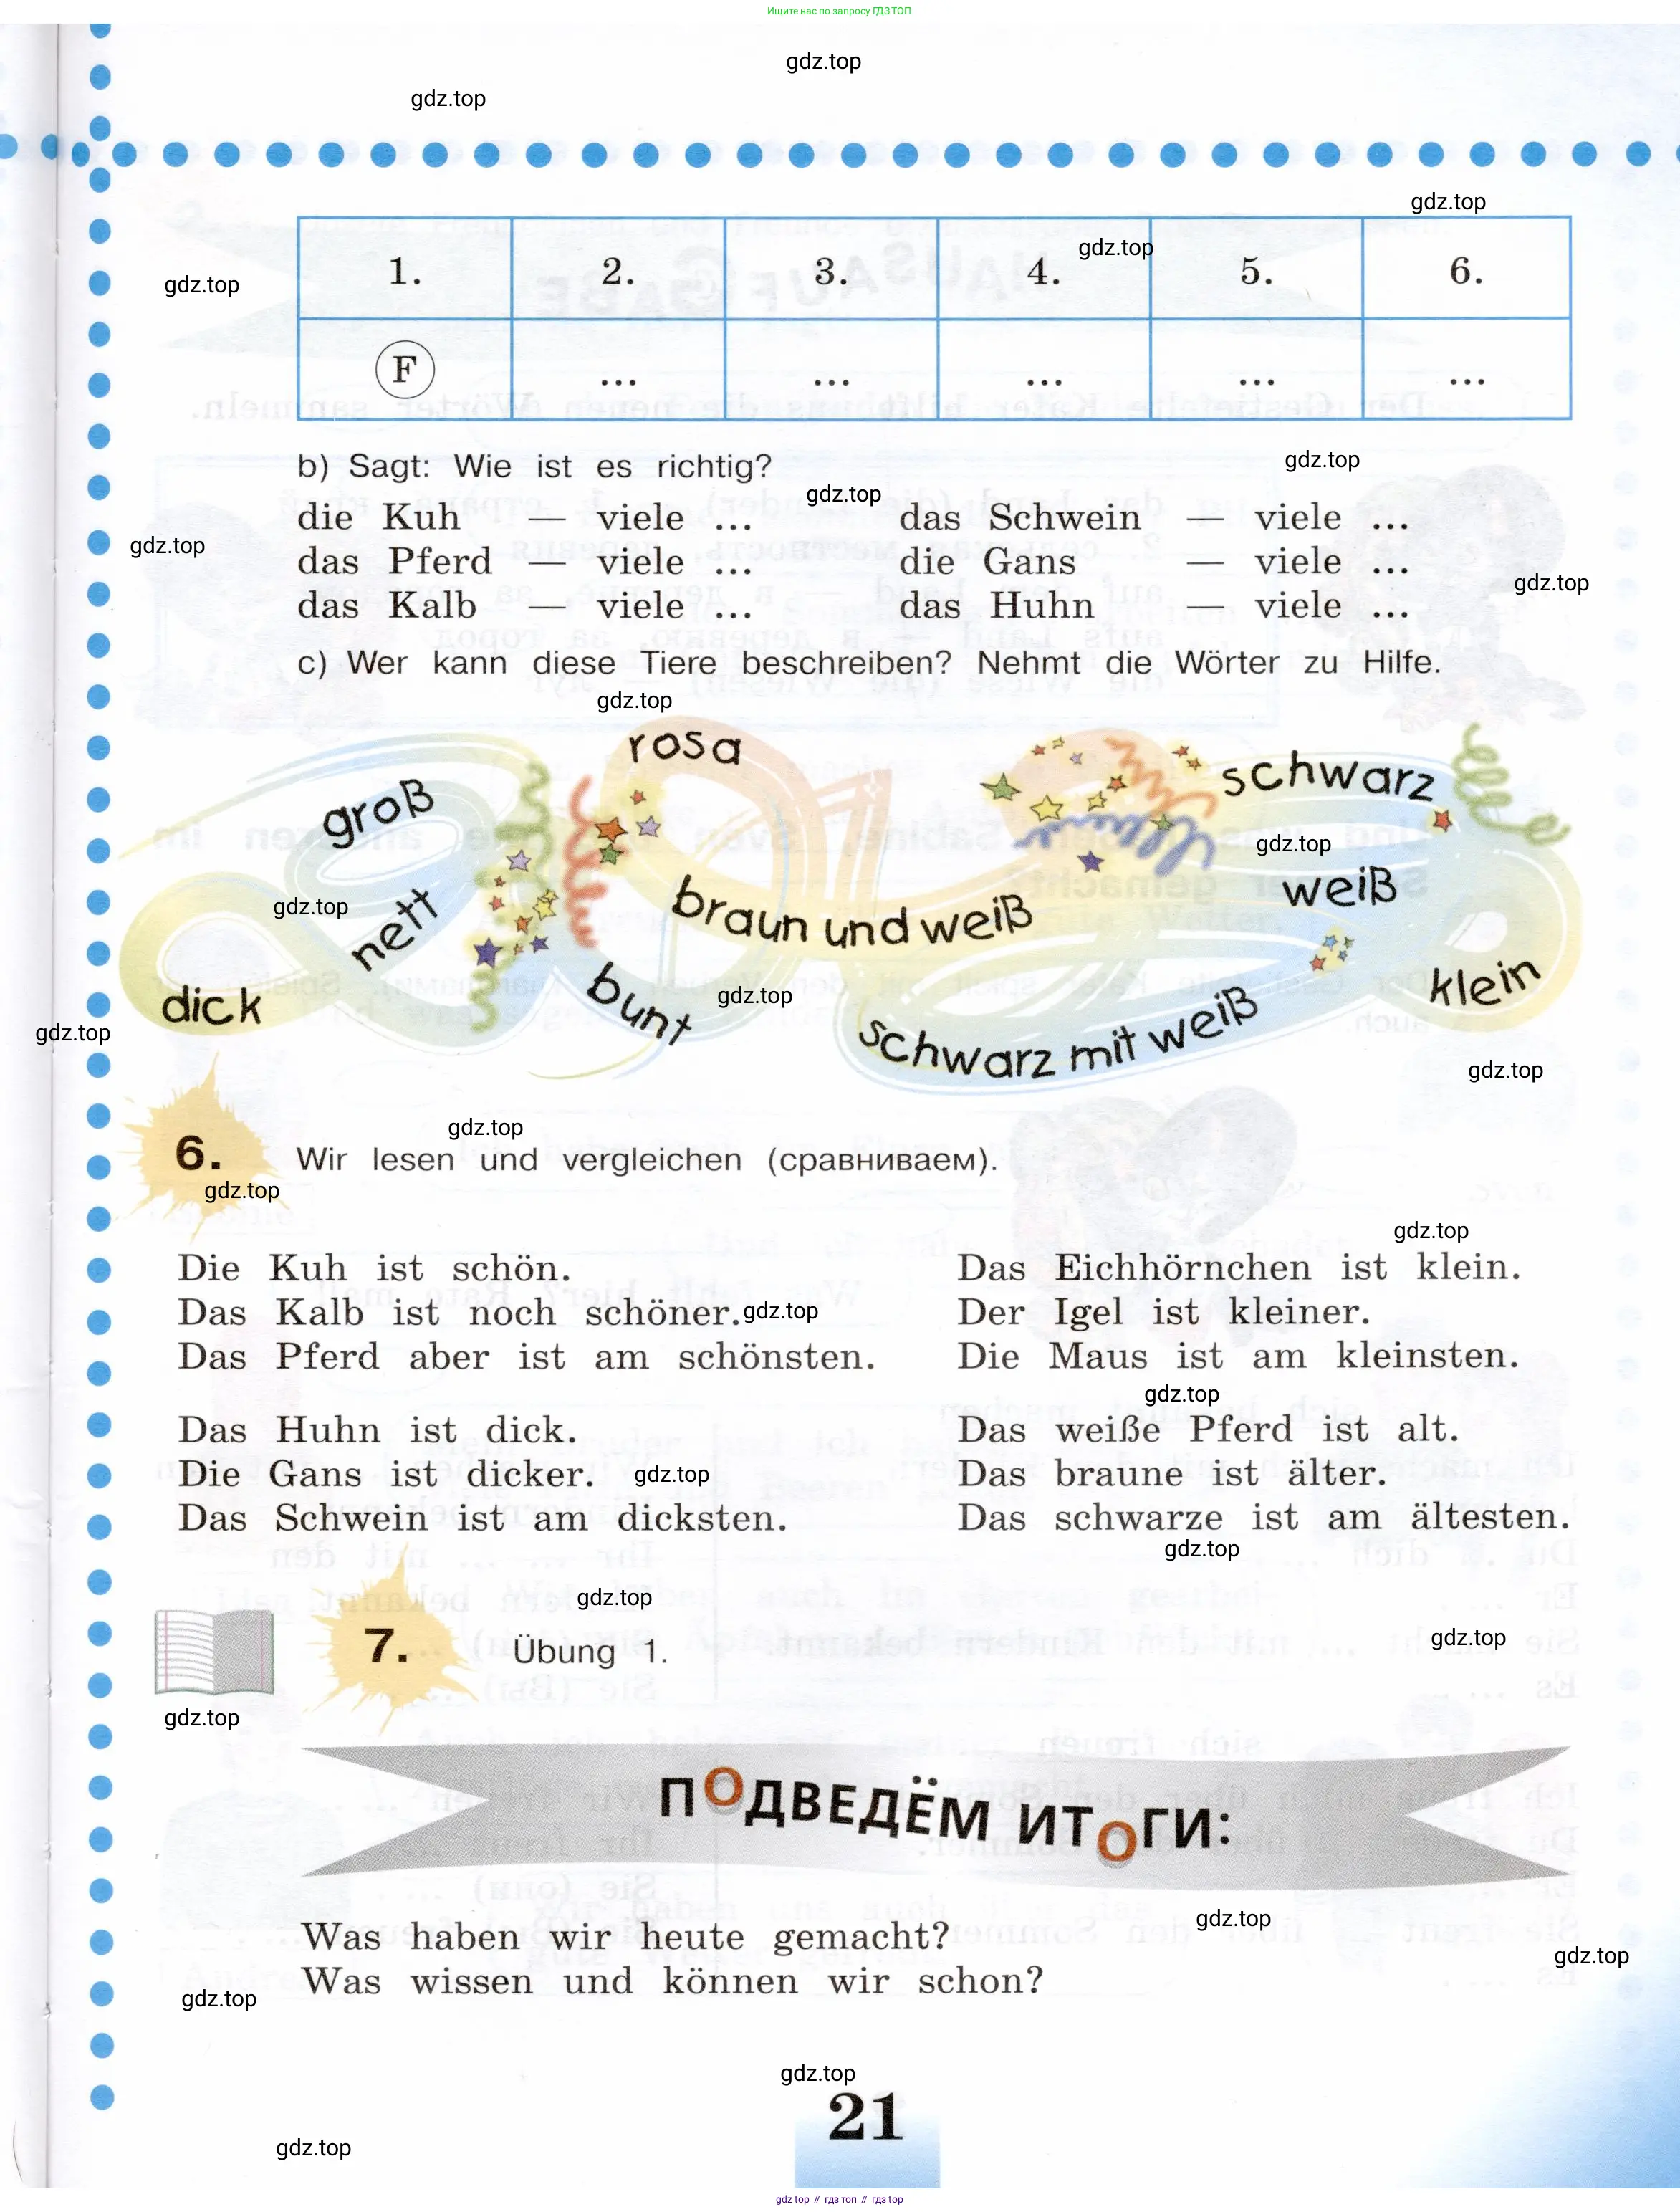 Ищите нас по запросу ГДЗ ТОП
gdz.top
gdz.top
gdz.top
1. 2. 3. 4. gdz.top 5. 6.
gdz.top
F ... ... ... ... ...
b) Sagt: Wie ist es richtig?
gdz.top
gdz.top
die Kuh — viele ... das Schwein — viele ...
gdz.top
das Pferd — viele ... die Gans — viele ...
gdz.top
das Kalb — viele ... das Huhn — viele ...
c) Wer kann diese Tiere beschreiben? Nehmt die Wörter zu Hilfe.
gdz.top
rosa
schwarz
groß
gdz.top
weiß
gdz.top
nett
braun und weiß
klein
dick
bunt
gdz.top
schwarz mit weiß
gdz.top
gdz.top
gdz.top
6. Wir lesen und vergleichen (сравниваем).
gdz.top
gdz.top
Die Kuh ist schön.
Das Kalb ist noch schöner. gdz.top
Das Pferd aber ist am schönsten.
Das Eichhörnchen ist klein.
Der Igel ist kleiner.
Die Maus ist am kleinsten.
gdz.top
Das Huhn ist dick.
Die Gans ist dicker. gdz.top
Das Schwein ist am dicksten.
Das weiße Pferd ist alt.
Das braune ist älter.
Das schwarze ist am ältesten.
gdz.top
gdz.top
7. Übung 1.
gdz.top
gdz.top
ПОДВЕДЁМ ИТОГИ:
gdz.top
Was haben wir heute gemacht?
gdz.top
Was wissen und können wir schon?
gdz.top
gdz.top
21
gdz.top
gdz.top // гдз топ // гдз.top